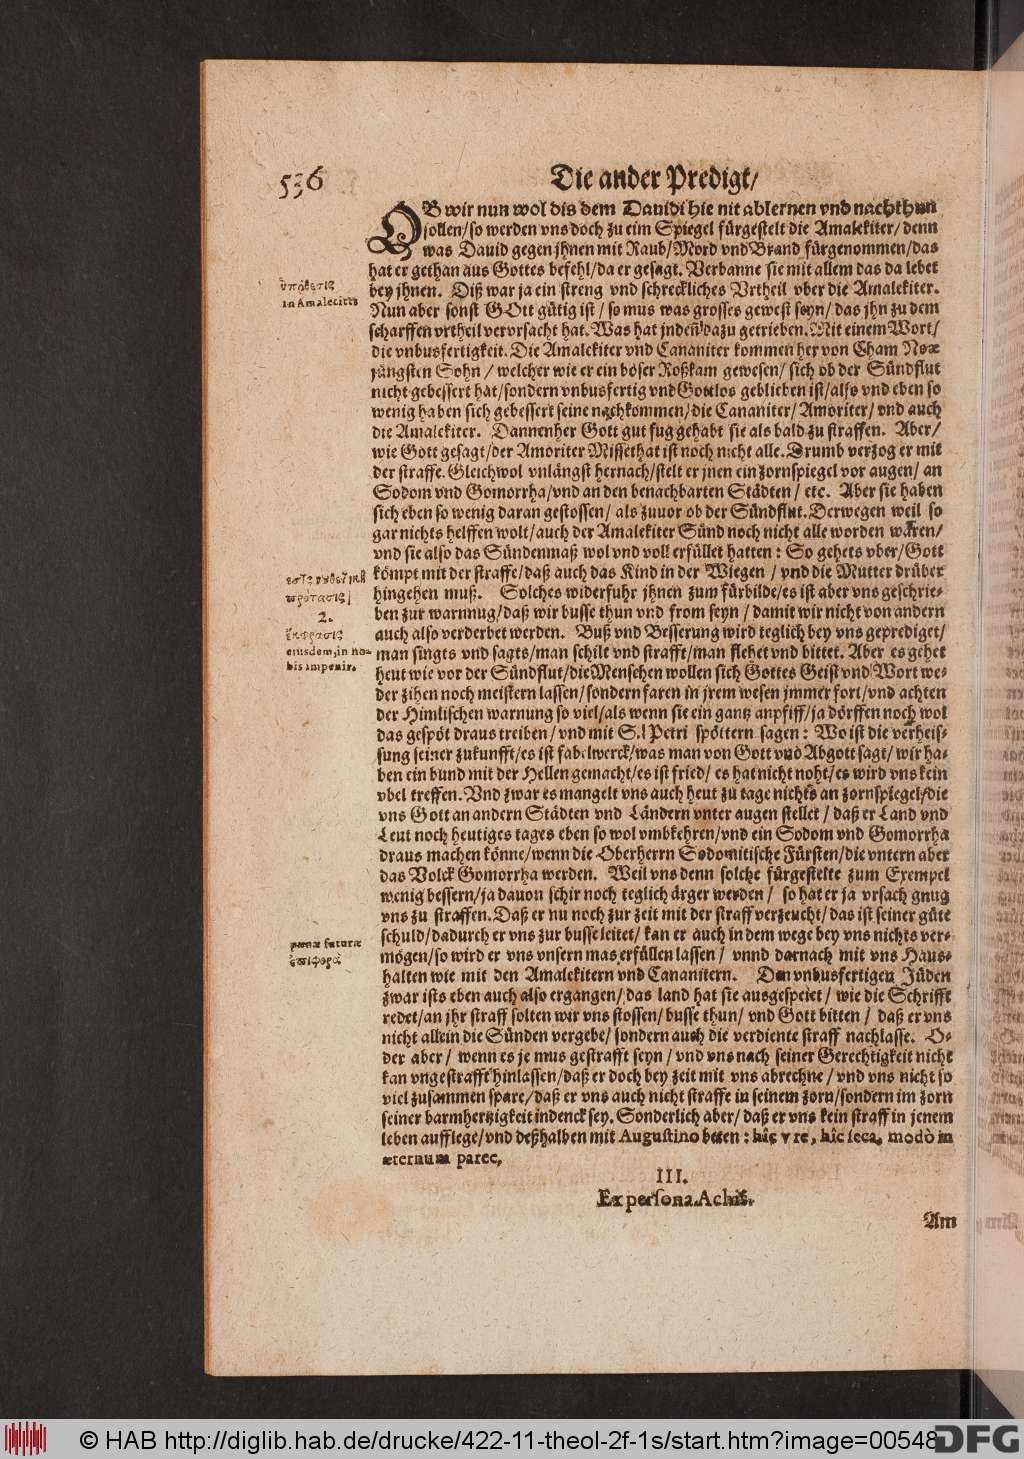 536
Die ander Predigt/
OB wir nun wol dis dem Dauidi hie nit ablernen vnd nachthun
sollen/so werden vns doch zu eim Spiegel fürgestelt die Amalekiter/denn
was Dauid gegen jhnen mit Raub/Mord vnd Brand fürgenommen/das
hat er gethan aus Gottes befehl/da er gesagt. Verbanne sie mit allem das da lebet
bey jhnen. Diß war ja ein streng vnd schreckliches Vrtheil vber die Amalekiter.
Nun aber sonst GOtt gütig ist / so mus was grosses gewest seyn/das jhn zu dem
scharffen vrtheil vervrsacht hat. Was hat jndeñ dazu getrieben. Mit einem Wort/
die vnbusfertigkeit. Die Amalekiter vnd Cananiter kommen her von Cham Noæ
jüngsten Sohn / welcher wie er ein böser Roßkam gewesen/ sich ob der Sündflut
nicht gebessert hat/sondern vnbusfertig vnd Gottlos geblieben ist/also vnd eben so
wenig haben sich gebessert seine nachkommen/die Cananiter/ Amoriter/ vnd auch
die Amalekiter. Dannenher Gott gut fug gehabt sie als bald zu straffen. Aber/
wie Gott gesagt/der Amoriter Missethat ist noch nicht alle. Drumb verzog er mit
der straffe. Gleichwol vnlängst hernach/stelt er jnen ein zornspiegel vor augen/ an
Sodom vnd Gomorrha/vnd an den benachbarten Städten / etc. Aber sie haben
sich eben so wenig daran gestossen/ als zuuor ob der Sündflut. Derwegen weil so
gar nichts helffen wolt/auch der Amalekiter Sünd noch nicht alle worden waren/
vnd sie also das Sündenmaß wol vnd voll erfüllet hatten : So gehets vber/Gott
kömpt mit der straffe/daß auch das Kind in der Wiegen / vnd die Mutter drüber
hingehen muß. Solches widerfuhr jhnen zum fürbilde/es ist aber vns geschrie-
ben zur warnung/daß wir busse thun vnd from seyn / damit wir nicht von andern
auch also verderbet werden. Buß vnd Besserung wird teglich bey vns geprediget/
man singts vnd sagts/man schilt vnd strafft/man flehet vnd bittet. Aber es gehet
heut wie vor der Sündflut/die Menschen wollen sich Gottes Geist vnd Wort we-
der zihen noch meistern lassen/sondern faren in jrem wesen jmmer fort/vnd achten
der Himlischen warnung so viel/als wenn sie ein gantz anpfiff/ja dörffen noch wol
das gespöt draus treiben / vnd mit S. Petri spöttern sagen : Wo ist die verheis-
sung seiner zukunfft/es ist fabelwerck/was man von Gott vnd Abgott sagt/ wir ha-
ben ein bund mit der Hellen gemacht/es ist fried/ es hat nicht noht/es wird vns kein
vbel treffen. Vnd zwar es mangelt vns auch heut zu tage nichts an zornspiegel/die
vns Gott an andern Städten vnd Ländern vnter augen stellet / daß er Land vnd
Leut noch heutiges tages eben so wol vmbkehren/vnd ein Sodom vnd Gomorrha
draus machen könne/wenn die Oberherrn Sodomitische Fürsten/die vntern aber
das Volck Gomorrha werden. Weil vns denn solche fürgestelte zum Exempel
wenig bessern/ja dauon schir noch teglich ärger werden / so hat er ja vrsach gnug
vns zu straffen. Daß er nu noch zur zeit mit der straff verzeucht/ das ist seiner güte
schuld/dadurch er vns zur busse leitet/ kan er auch in dem wege bey vns nichts ver-
mögen/so wird er vns vnsern mas erfüllen lassen / vnnd darnach mit vns Haus-
halten wie mit den Amalekitern vnd Cananitern. Den vnbusfertigen Jüden
zwar ists eben auch also ergangen/das land hat sie ausgespeiet / wie die Schrifft
redet/an jhr straff solten wir vns stossen/ busse thun/ vnd Gott bitten / daß er vns
nicht allein die Sünden vergebe/ sondern auch die verdiente straff nachlasse. O-
der aber / wenn es je mus gestrafft seyn / vnd vns nach seiner Gerechtigkeit nicht
kan vngestrafft hinlassen/daß er doch bey zeit mit vns abrechne / vnd vns nicht so
viel zusammen spare/daß er vns auch nicht straffe in seinem zorn/sondern im zorn
seiner barmhertzigkeit indenck sey. Sonderlich aber/ daß er vns kein straff in jenem
leben aufflege/vnd deßhalben mit Augustino beten : hîc vre, hîc seca, modò in
æternum parce,
III.
Ex persona Achis.
Am
ὑπόθεσις
in Amalecitis
πρότασις
2.
ἔκφρασις
eiusdem, in no-
bis impenir.
pœnæ futuræ
ἐπιφορὰ
© HAB http://diglib.hab.de/drucke/422-11-theol-2f-1s/start.htm?image=00548
DFG